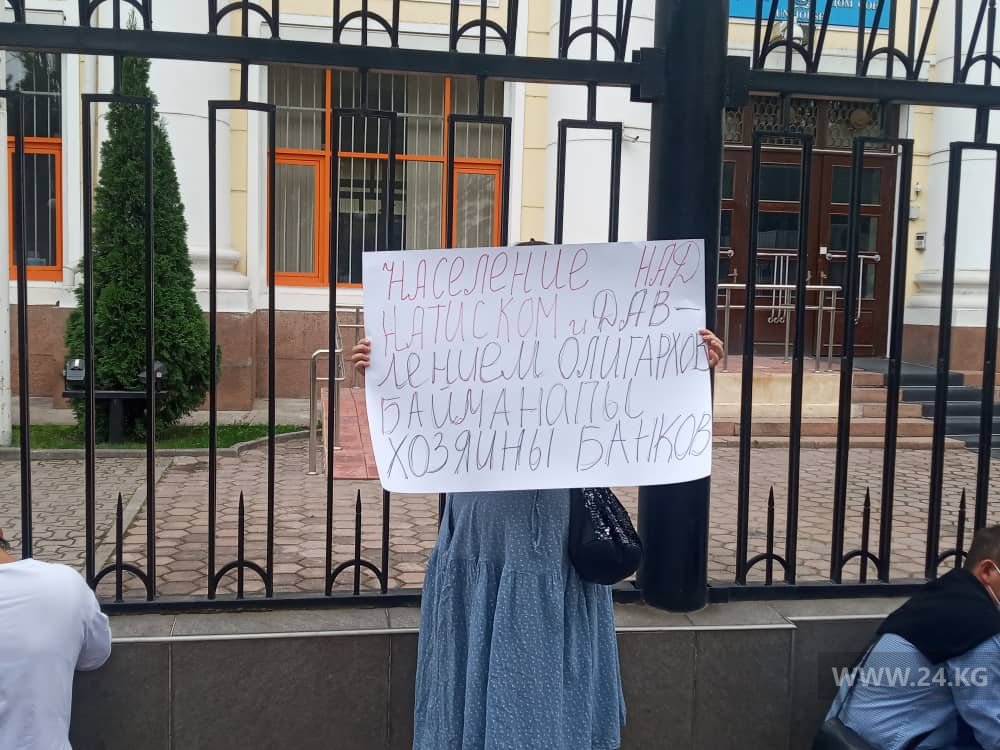 ДОМ ООН
UN HOUSE
НАСЕЛЕНИЕ НАД
НАТИСКОМ И ДАВ-
ЛЕНИЕМ ОЛИГАРХОВ
БАЙМАНАПЫ
ХОЗЯИНЫ БАНКОВ
WWW.24.KG